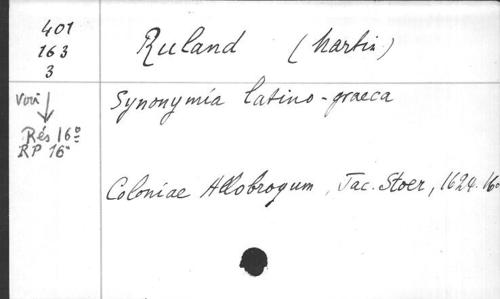 401
163
3
Ruland (Martin)
Voir
Synonymia latino-graeca
Rés 16º
RP 16º
Coloniae Allobrogum, Jac. Stoer, 1624. 16º